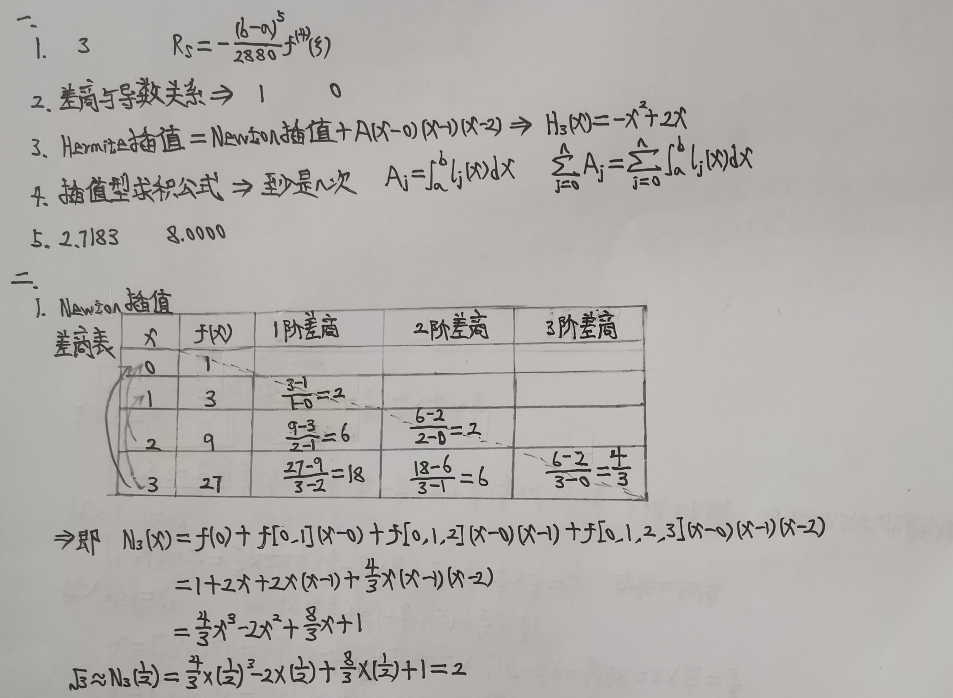 一.
1. 3 R_S = -(b-a)^5/2880 f^(4)(ξ)
2. 差商与导数关系 ⇒ 1 0
3. Hermite插值 = Newton插值 + A(x-0)(x-1)(x-2) ⇒ H_3(x) = -x^2+2x
4. 插值型求积公式 ⇒ 至少是n次 A_j = ∫_a^b l_j(x)dx ∑_{j=0}^n A_j = ∑_{j=0}^n ∫_a^b l_j(x)dx
5. 2.7183 8.0000
二.
1. Newton插值
差商表 x f(x) 1阶差商 2阶差商 3阶差商
0 1
1 3 (3-1)/(1-0)=2
2 9 (9-3)/(2-1)=6 (6-2)/(2-0)=2
3 27 (27-9)/(3-2)=18 (18-6)/(3-1)=6 (6-2)/(3-0)=4/3
⇒即 N_3(x) = f(0) + f[0,1](x-0) + f[0,1,2](x-0)(x-1) + f[0,1,2,3](x-0)(x-1)(x-2)
= 1+2x+2x(x-1)+4/3x(x-1)(x-2)
= 4/3x^3-2x^2+8/3x+1
√3≈N_3(1/2) = 4/3×(1/2)^3-2×(1/2)+8/3×(1/2)+1=2